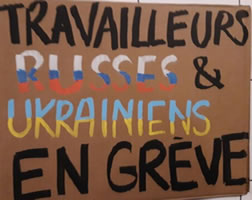 TRAVAILLEURS
RUSSES &
UKRAINIENS
EN GRÈVE